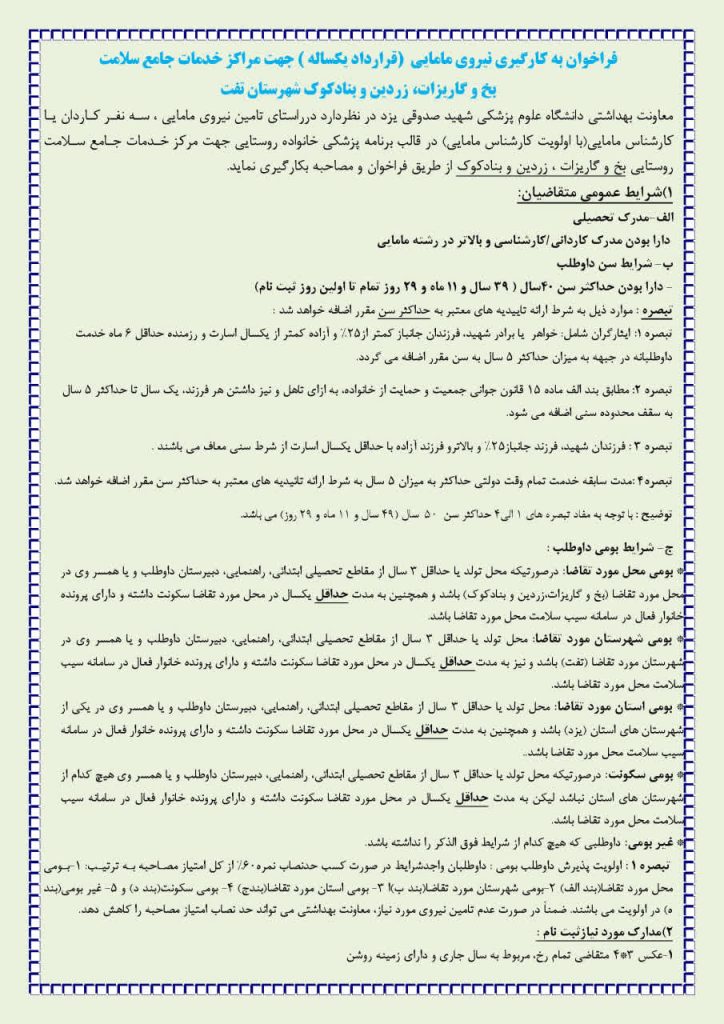 فراخوان به کارگیری نیروی مامایی (قرارداد یکساله ) جهت مراکز خدمات جامع سلامت
بخ و گاریزات، زردین و بنادکوک شهرستان تفت
معاونت بهداشتی دانشگاه علوم پزشکی شهید صدوقی یزد در نظردارد درراستای تامین نیروی مامایی ، سه نفر کاردان یا
کارشناس مامایی(با اولویت کارشناس مامایی) در قالب برنامه پزشکی خانواده روستایی جهت مرکز خدمات جامع سلامت
روستایی بخ و گاریزات ، زردین و بنادکوک از طریق فراخوان و مصاحبه بکارگیری نماید.
۱)شرایط عمومی متقاضیان:
الف-مدرک تحصیلی
دارا بودن مدرک کاردانی/کارشناسی و بالاتر در رشته مامایی
ب- شرایط سن داوطلب
- دارا بودن حداکثر سن ۴۰سال ( ۳۹ سال و ۱۱ ماه و ۲۹ روز تمام تا اولین روز ثبت نام)
تبصره : موارد ذیل به شرط ارائه تاییدیه های معتبر به حداکثر سن مقرر اضافه خواهد شد :
تبصره ۱: ایثارگران شامل: خواهر یا برادر شهید، فرزندان جانباز کمتر از۲۵٪ و آزاده کمتر از یکسال اسارت و رزمنده حداقل ۶ ماه خدمت
داوطلبانه در جبهه به میزان حداکثر ۵ سال به سن مقرر اضافه می گردد.
تبصره ۲: مطابق بند الف ماده ۱۵ قانون جوانی جمعیت و حمایت از خانواده، به ازای تاهل و نیز داشتن هر فرزند، یک سال تا حداکثر ۵ سال
به سقف محدوده سنی اضافه می شود.
تبصره ۳ : فرزندان شهید، فرزند جانباز۲۵٪ و بالاترو فرزند آزاده با حداقل یکسال اسارت از شرط سنی معاف می باشند .
تبصره۴ :مدت سابقه خدمت تمام وقت دولتی حداکثر به میزان ۵ سال به شرط ارائه تائیدیه های معتبر به حداکثر سن مقرر اضافه خواهد شد.
توضیح : با توجه به مفاد تبصره های ۱ الی۴ حداکثر سن ۵۰ سال (۴۹ سال و ۱۱ ماه و ۲۹ روز) می باشد.
ج- شرایط بومی داوطلب :
* بومی محل مورد تقاضا: درصورتیکه محل تولد یا حداقل ۳ سال از مقاطع تحصیلی ابتدائی، راهنمایی، دبیرستان داوطلب و یا همسر وی در
محل مورد تقاضا (بخ و گاریزات،زردین و بنادکوک) باشد و همچنین به مدت حداقل یکسال در محل مورد تقاضا سکونت داشته و دارای پرونده
خانوار فعال در سامانه سیب سلامت محل مورد تقاضا باشد.
* بومی شهرستان مورد تقاضا: محل تولد یا حداقل ۳ سال از مقاطع تحصیلی ابتدائی، راهنمایی، دبیرستان داوطلب و یا همسر وی در
شهرستان مورد تقاضا (تفت) باشد و نیز به مدت حداقل یکسال در محل مورد تقاضا سکونت داشته و دارای پرونده خانوار فعال در سامانه سیب
سلامت محل مورد تقاضا باشد.
* بومی استان مورد تقاضا: محل تولد یا حداقل ۳ سال از مقاطع تحصیلی ابتدائی، راهنمایی، دبیرستان داوطلب و یا همسر وی در یکی از
شهرستان های استان (یزد) باشد و همچنین به مدت حداقل یکسال در محل مورد تقاضا سکونت داشته و دارای پرونده خانوار فعال در سامانه
سیب سلامت محل مورد تقاضا باشد..
* بومی سکونت: درصورتیکه محل تولد یا حداقل ۳ سال از مقاطع تحصیلی ابتدائی، راهنمایی، دبیرستان داوطلب و یا همسر وی هیچ کدام از
شهرستان های استان نباشد لیکن به مدت حداقل یکسال در محل مورد تقاضا سکونت داشته و دارای پرونده خانوار فعال در سامانه سیب
سلامت محل مورد تقاضا باشد.
* غیر بومی: داوطلبی که هیچ کدام از شرایط فوق الذکر را نداشته باشد.
تبصره ۱ : اولویت پذیرش داوطلب بومی : داوطلبان واجدشرایط در صورت کسب حدنصاب نمره۶۰٪ از کل امتیاز مصاحبه به ترتیب: ۱-بومی
محل مورد تقاضا(بند الف) ۲-بومی شهرستان مورد تقاضا(بند ب)ا ۳- بومی استان مورد تقاضا(بندج) ۴- بومی سکونت(بند د) و ۵- غیر بومی(بند
ه) در اولویت می باشند. ضمناً در صورت عدم تامین نیروی مورد نیاز، معاونت بهداشتی می تواند حد نصاب امتیاز مصاحبه را کاهش دهد.
۲)مدارک مورد نیازثبت نام :
۱-عکس ۳*۴ متقاضی تمام رخ، مربوط به سال جاری و دارای زمینه روشن